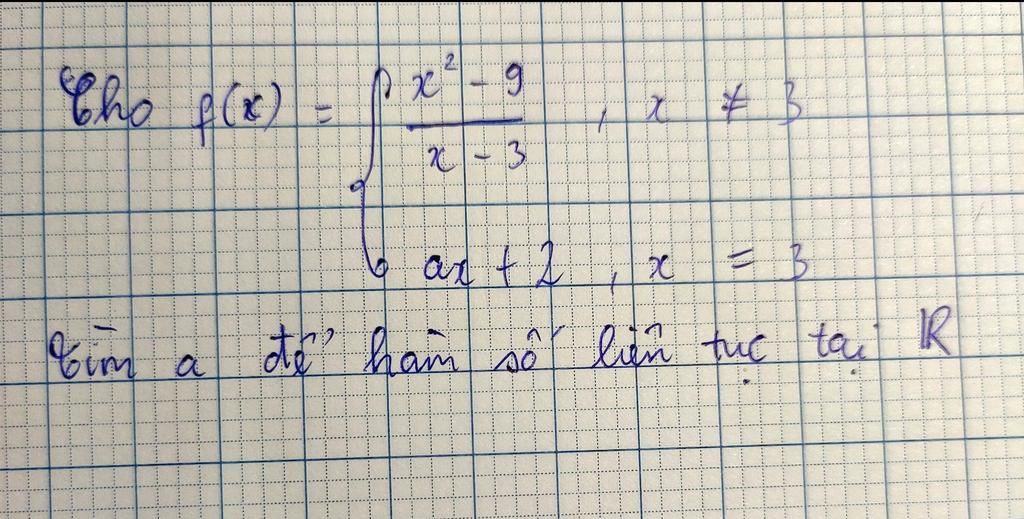 Cho f(x) = { x² - 9 / x - 3 , x ≠ 3
ax + 2 , x = 3
Tìm a để hàm số liên tục tại ℝ